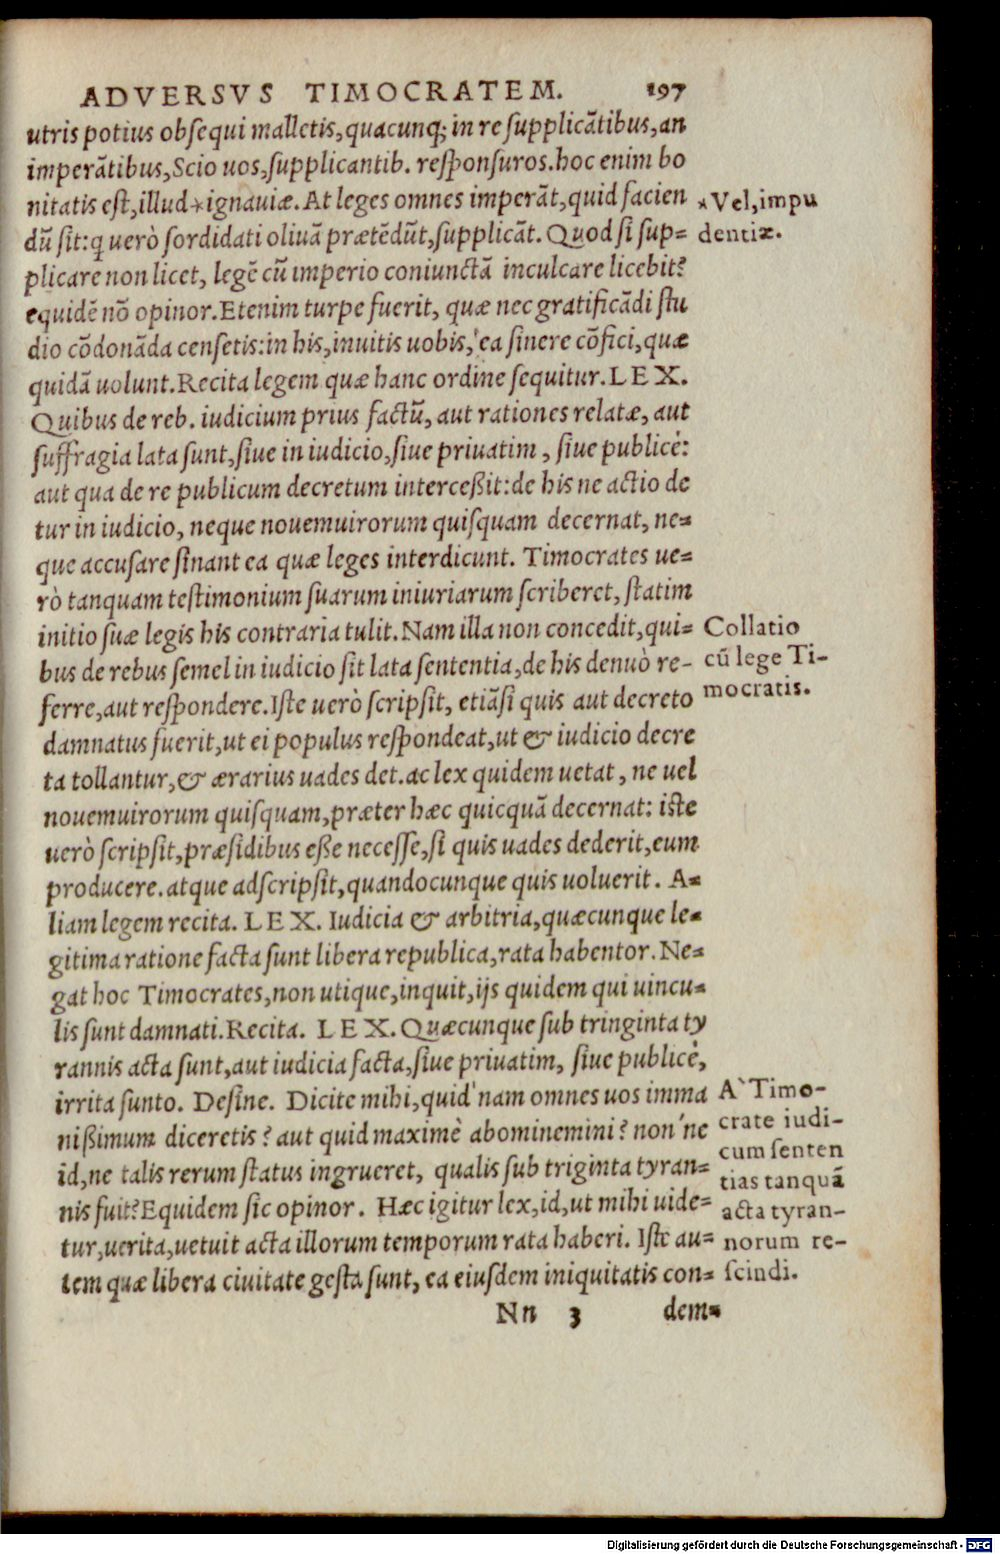 ADVERSVS TIMOCRATEM. 197
utris potius obsequi malletis,quacunq; in re supplicãtibus,an
imperãtibus,Scio uos,supplicantib. responsuros.hoc enim bo
nitatis est,illud*ignauiæ.At leges omnes imperãt,quid facien
dũ sit:q uerò sordidati oliuã prætẽdũt,supplicãt.Quod si sup=
plicare non licet, legẽ cũ imperio coniunctã inculcare licebit?
equidẽ nõ opinor.Etenim turpe fuerit, quæ nec gratificãdi stu
dio cõdonãda censetis:in his,inuitis uobis, ea sinere cõfici,quæ
quidã uolunt.Recita legem quæ hanc ordine sequitur.LEX.
Quibus de reb. iudicium prius factũ, aut rationes relatæ, aut
suffragia lata sunt,siue in iudicio,siue priuatim, siue publicè:
aut qua de re publicum decretum interceßit:de his ne actio de
tur in iudicio, neque nouemuirorum quisquam decernat, ne=
que accusare sinant ea quæ leges interdicunt. Timocrates ue=
rò tanquam testimonium suarum iniuriarum scriberet, statim
initio suæ legis his contraria tulit.Nam illa non concedit,qui=
bus de rebus semel in iudicio sit lata sententia,de his denuò re-
ferre,aut respondere.Iste uerò scripsit, etiãsi quis aut decreto
damnatus fuerit,ut ei populus respondeat,ut & iudicio decre
ta tollantur,& ærarius uades det.ac lex quidem uetat, ne uel
nouemuirorum quisquam,præter hæc quicquã decernat: iste
uerò scripsit,præsidibus eße necesse,si quis uades dederit,eum
producere.atque adscripsit,quandocunque quis uoluerit. A=
liam legem recita. LEX. Iudicia & arbitria,quæcunque le=
gitima ratione facta sunt libera republica,rata habentor.Ne=
gat hoc Timocrates,non utique,inquit,ijs quidem qui uincu=
lis sunt damnati.Recita. LEX.Quæcunque sub tringinta ty
rannis acta sunt,aut iudicia facta,siue priuatim, siue publicè,
irrita sunto. Desine. Dicite mihi,quid nam omnes uos imma
nißimum diceretis? aut quid maximè abominemini? non'ne
id,ne talis rerum status ingrueret, qualis sub triginta tyran=
nis fuit?Equidem sic opinor. Hæc igitur lex,id,ut mihi uide=
tur,uerita,uetuit acta illorum temporum rata haberi. Iste au=
tem quæ libera ciuitate gesta sunt, ea eiusdem iniquitatis con=
Nn 3 dem=
*Vel,impu
dentiæ.
Collatio
cũ lege Ti-
mocratis.
A` Timo-
crate iudi-
cum senten
tias tanquã
acta tyran-
norum re-
scindi.
Digitalisierung gefördert durch die Deutsche Forschungsgemeinschaft - DFG